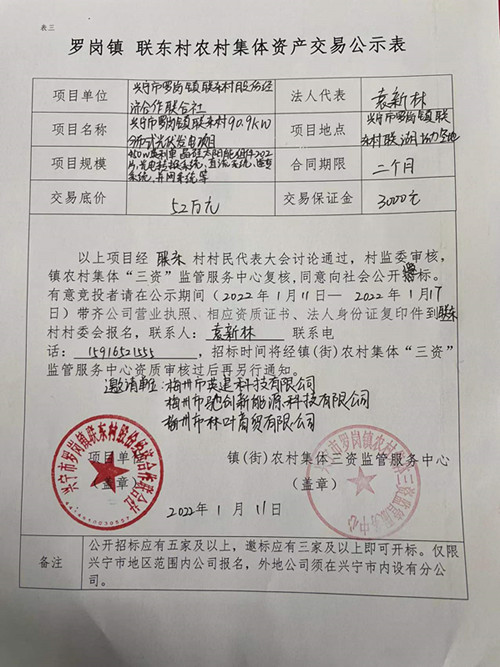 表三
罗岗镇 联东村农村集体资产交易公示表
项目单位 兴宁市罗岗镇联东村股份经济合作联合社 法人代表 袁新林
项目名称 兴宁市罗岗镇联东村90.9KW分布式光伏发电项目 项目地点 兴宁市罗岗镇联东村联湖
项目规模 450W单晶硅太阳能组件202片,直流系统,并网系统等 合同期限 二个月
交易底价 52万元 交易保证金 3000元
以上项目经 联东 村村民代表大会讨论通过,村监委审核,
镇农村集体“三资”监管服务中心复核,同意向社会公开邀标。
有意竞投者请在公示期间(2022年1月11日— 2022年1月17
日)带齐公司营业执照、相应资质证书、法人身份证复印件到联东
村村委会报名,联系人:袁新林 联系电
话:15916521555,招标时间将经镇(街)农村集体“三资”
监管服务中心资质审核过后再另行通知。
邀请单位:梅州市英建科技有限公司
梅州市驰创新能源科技有限公司
梅州市林叶商贸有限公司
项目单位 镇(街)农村集体三资监管服务中心
(盖章) (盖章)
兴宁市罗岗镇联东村股份经济合作联合社
兴宁市罗岗镇农村集体三资监管服务中心
2022年1月11日
备注 公开招标应有五家及以上,邀标应有三家及以上即可开标。仅限
兴宁市地区范围内公司报名,外地公司须在兴宁市内设有分公
司。